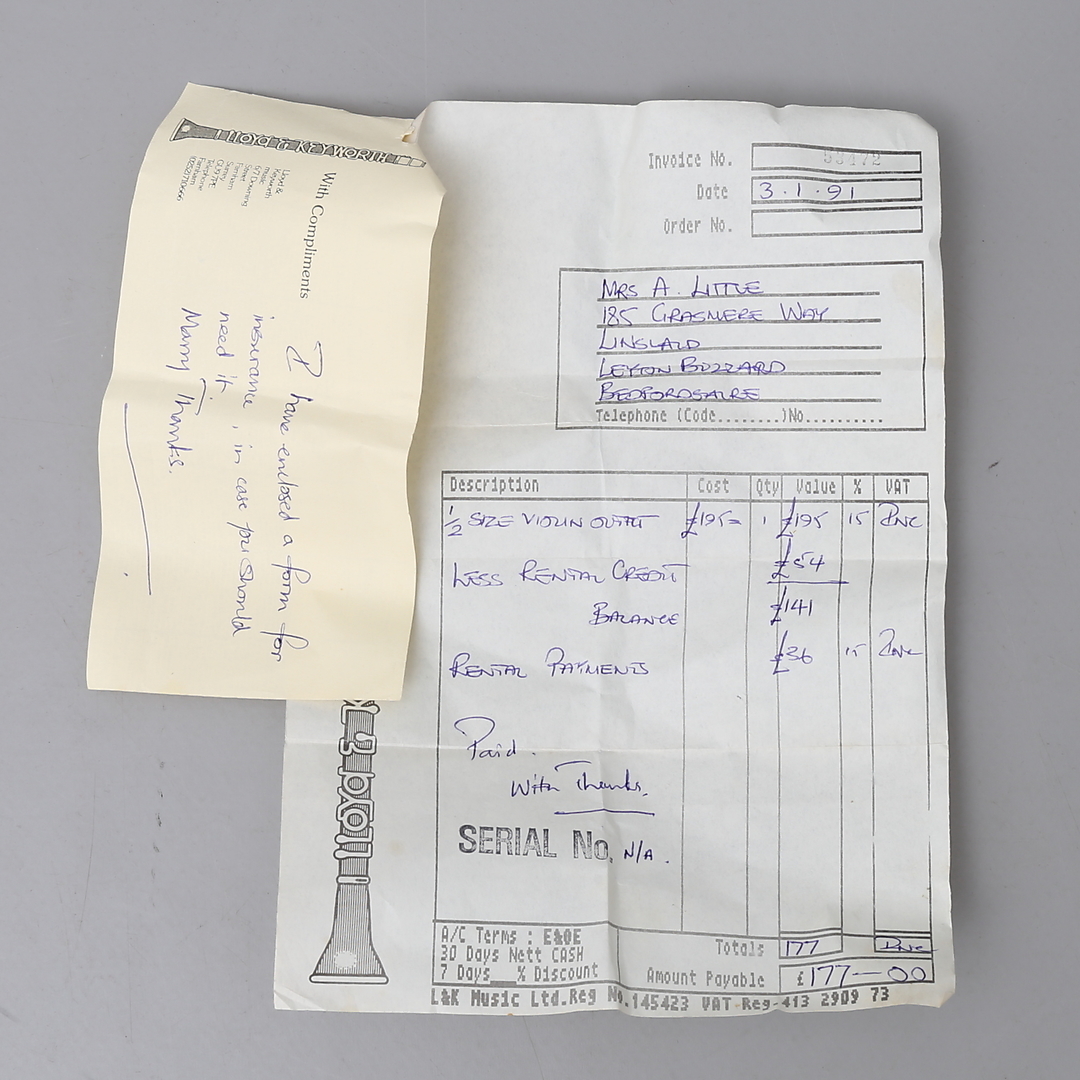 LLOYD & KEYWORTH
Lloyd &
Keyworth
music
6/7 Downing
Street
Farnham
Surrey
GU9 7PE
Telephone
Farnham
With Compliments
I have enclosed a form for
insurance, in case you should
need it.
Many Thanks.
Invoice No. 53472
Date 3.1.91
Order No.
MRS A. LITTLE
185 GRASMERE WAY
LINSLAID
LEYTON BUZZARD
BEDFORDSHIRE
Telephone (Code........)No..........
Description Cost Qty Value % VAT
½ SIZE VIOLIN OUTFIT £195= 1 £195 15 INC
LESS RENTAL CREDIT £54
BALANCE £141
RENTAL PAYMENTS £36 15 INC
Paid.
With Thanks.
SERIAL No. N/A.
lloyd & K
A/C Terms : E&OE
30 Days Nett CASH
7 Days __% Discount
Totals 177 INC
Amount Payable £177—00
L&K Music Ltd.Reg No.145423 VAT-Reg-413 2909 73